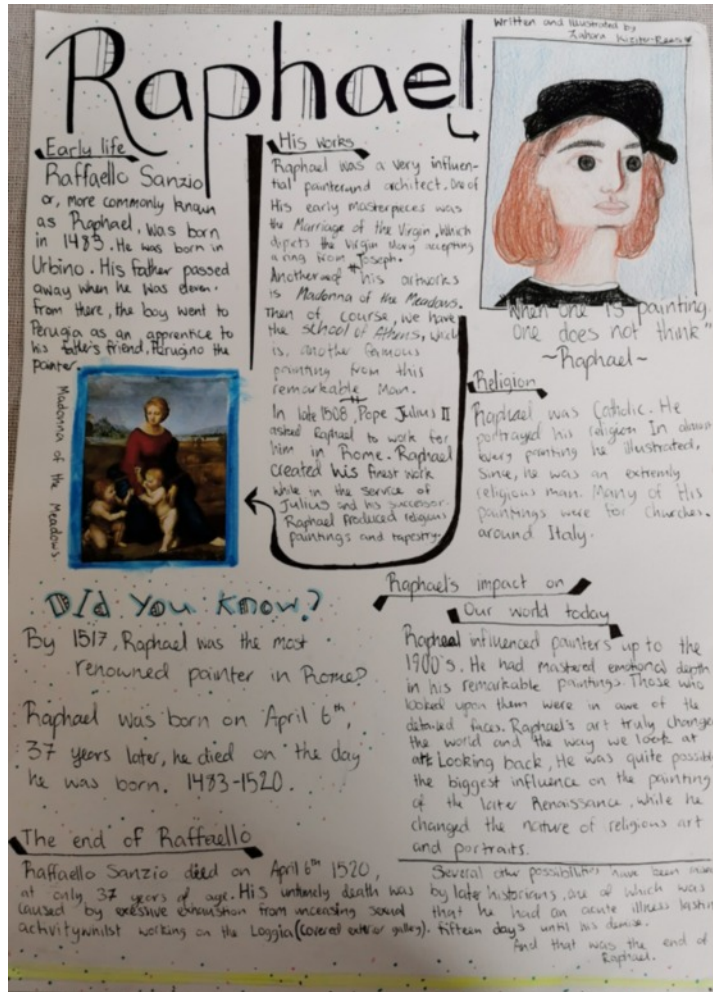 Written and Illustrated by
Zahara
Raphael
Early life
Raffaello Sanzio
or, more commonly known
as Raphael, was born
in 1483. He was born in
Urbino. His father passed
away when he was eleven.
from there, the boy went to
Perugia as an apprentice to
his father's friend, Perugino the
painter.
Madonna of the Meadows.
His works
Raphael was a very influen-
tial painter and architect. One of
His early masterpieces was
the Marriage of the Virgin, which
dipicts the Virgin Mary accepting
a ring from Joseph.
Another of his artworks
is Madonna of the Meadows.
Then of course, we have
the school of Athens, which
is, another famous
painting from this
remarkable man.
In late 1508, Pope Julius II
asked Raphael to work for
him in Rome. Raphael
created his finest work
while in the service of
Julius and his successor.
Raphael Produced religious
paintings and tapestry.
"When one is painting
one does not think"
~Raphael~
Religion
Raphael was Catholic. He
portrayed his religion In almost
every painting he illustrated,
Since, he was an extremly
religious man. Many of His
paintings were for churches.
around Italy.
Did You Know?
By 1517, Raphael was the most
renowned painter in Rome?
Raphael was born on April 6th,
37 years later, he died on the day
he was born. 1483-1520.
Raphael's impact on
Our world today
Raphael influenced painters up to the
1900's. He had mastered emotional depth
in his remarkable paintings. Those who
looked upon them were in awe of the
detailed faces. Raphael's art truly change
the world and the way we look at
art. Looking back, He was quite possibl
the biggest influence on the painting
of the later Renaissance, while he
changed the nature of religious art
and portraits.
The end of Raffaello
Raffaello Sanzio died on April 6th 1520,
at only 37 years of age. His untimely death was
caused by exessive exhaustion from unceasing sexual
activity whilst working on the Loggia (covered exterior gallery).
Several other possibilities have been
by later historians, one of which was
that he had an acute illness lastin
fifteen days until his demise.
And that was the end of
Raphael.